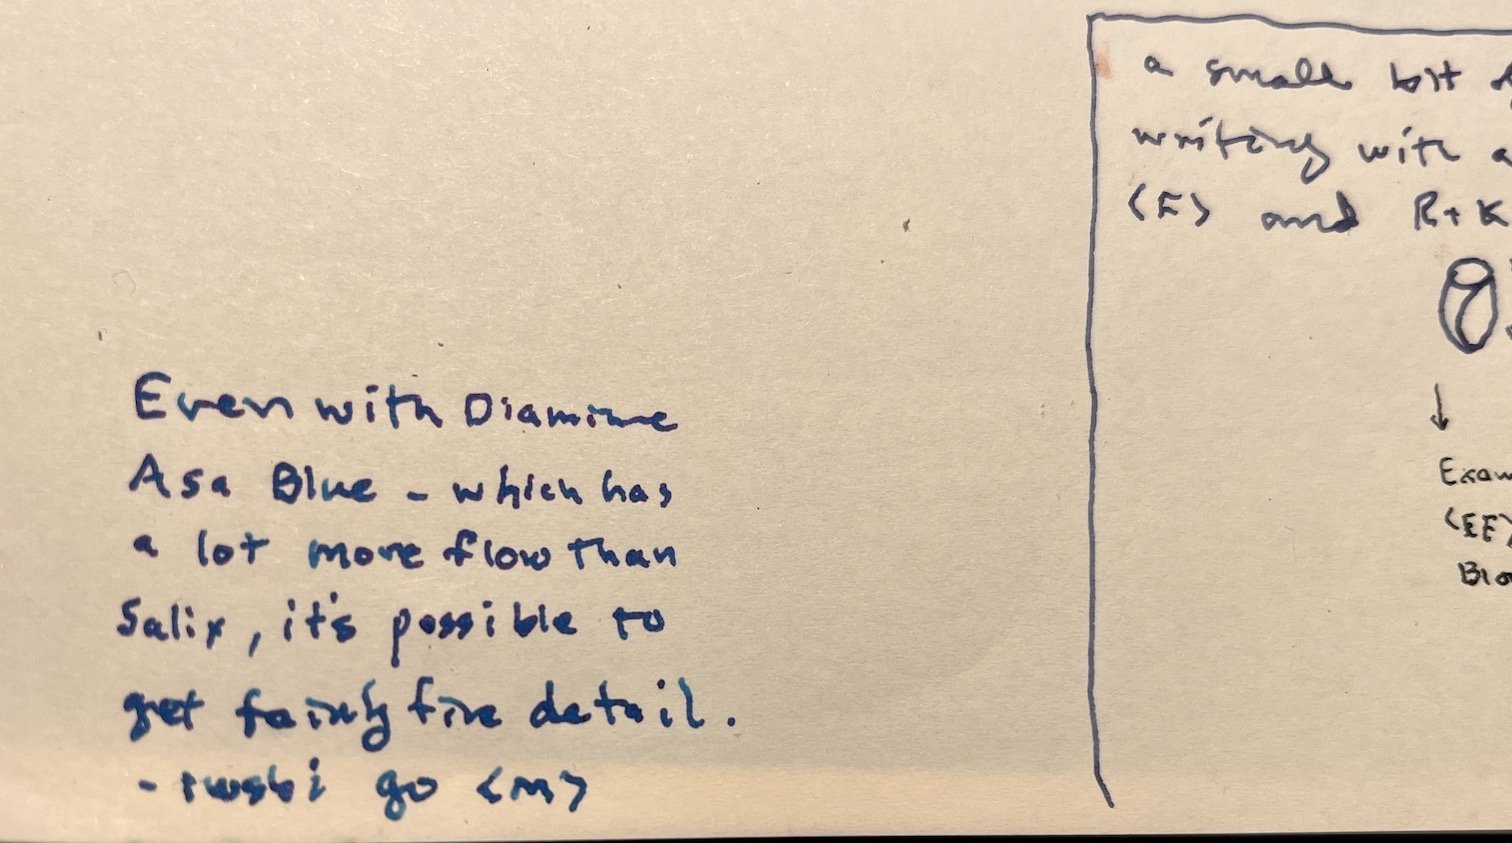 Even with Diamine
Asa Blue - which has
a lot more flow than
Salix, it's possible to
get fairly fine detail.
- twsbi go <m>
a small bit
writing with a
<F> and R+K
↓
Exam
<EF>
Blo